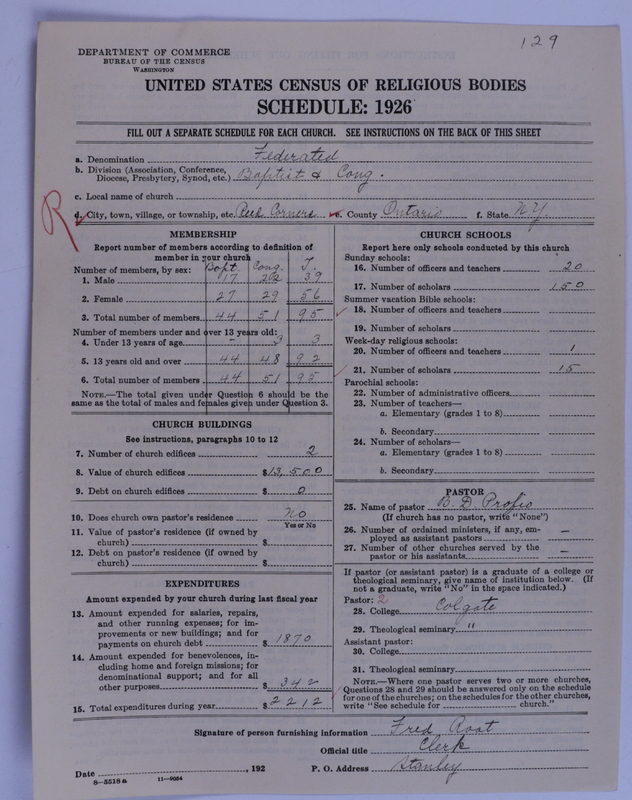 129
DEPARTMENT OF COMMERCE
BUREAU OF THE CENSUS
WASHINGTON
UNITED STATES CENSUS OF RELIGIOUS BODIES
SCHEDULE: 1926
FILL OUT A SEPARATE SCHEDULE FOR EACH CHURCH. SEE INSTRUCTIONS ON THE BACK OF THIS SHEET
a. Denomination Federated
b. Division (Association, Conference, Diocese, Presbytery, Synod, etc.) Baptist & Cong.
c. Local name of church
R
d. City, town, village, or township, etc. Reed Corners e. County Ontario f. State N.Y.
MEMBERSHIP
Report number of members according to definition of
member in your church
Number of members, by sex: Bapt. Cong. T.
1. Male 17 22 39
2. Female 27 29 56
3. Total number of members 44 51 95
Number of members under and over 13 years old:
4. Under 13 years of age - 3 3
5. 13 years old and over 44 48 92
6. Total number of members 44 51 95
NOTE.—The total given under Question 6 should be
same as the total of males and females given under Question 3.
CHURCH BUILDINGS
See instructions, paragraphs 10 to 12
7. Number of church edifices 2
8. Value of church edifices $13,500
9. Debt on church edifices $ 0
10. Does church own pastor's residence No
Yes or No
11. Value of pastor's residence (if owned by
church) $
12. Debt on pastor's residence (if owned by
church) $
EXPENDITURES
Amount expended by your church during last fiscal year
13. Amount expended for salaries, repairs,
and other running expenses; for im-
provements or new buildings; and for
payments on church debt $ 1870
14. Amount expended for benevolences, in-
cluding home and foreign missions; for
denominational support; and for all
other purposes $ 342
15. Total expenditures during year $ 2212
CHURCH SCHOOLS
Report here only schools conducted by this church
Sunday schools:
16. Number of officers and teachers 20
17. Number of scholars 150
Summer vacation Bible schools:
18. Number of officers and teachers
19. Number of scholars
Week-day religious schools:
20. Number of officers and teachers 1
21. Number of scholars 15
Parochial schools:
22. Number of administrative officers
23. Number of teachers—
a. Elementary (grades 1 to 8)
b. Secondary
24. Number of scholars—
a. Elementary (grades 1 to 8)
b. Secondary
PASTOR
25. Name of pastor B. D.
(If church has no pastor, write "None")
26. Number of ordained ministers, if any, em-
ployed as assistant pastors –
27. Number of other churches served by the
pastor or his assistants –
If pastor (or assistant pastor) is a graduate of a college or
theological seminary, give name of institution below. (If
not a graduate, write "No" in the space indicated.)
Pastor: 2
28. College Colgate
29. Theological seminary "
Assistant pastor:
30. College
31. Theological seminary
NOTE.—Where one pastor serves two or more churches,
Questions 28 and 29 should be answered only on the schedule
for one of the churches; on the schedules for the other churches,
write "See schedule for church."
Signature of person furnishing information Fred Root
Official title Clerk
Date , 192 P. O. Address Stanley
8—5518a 11—9054